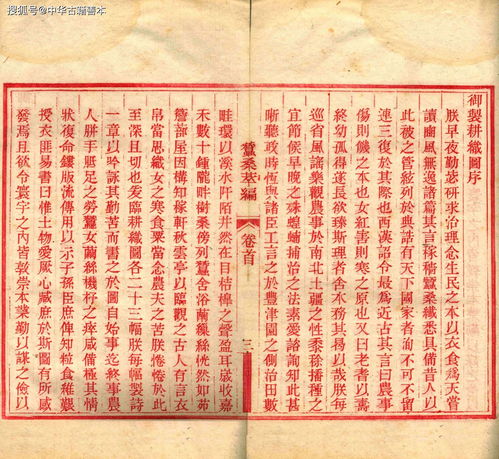 搜狐号@中华古籍善本
御製耕織圖序
朕早夜勤毖研求治理念生民之本以衣食為天嘗
讀豳風無逸諸篇其言稼穡蠶桑纖悉具備昔人以
此被之管絃列於典誥有天下國家者洵不可不留
連三復於其際也西漢詔令最為近古其言曰農事
傷則饑之本也女紅害則寒之原也又曰老耆以壽
終幼孤得遂長欲臻斯理者舍本務其曷以哉朕每
巡省風謠樂觀農事於南北土疆之性黍稌播種之
宜節候早晚之殊蝗蝻捕治之法素愛諮詢知此甚
晰聽政時恆與諸臣工言之於豐澤園之側治田數
蠶桑萃編
卷首
三
畦環以溪水阡陌井然在目桔槔之聲盈耳歲收嘉
禾數十鍾隴畔樹桑傍列蠶舍浴繭繅絲恍然如茆
簷蔀屋因構知稼軒秋雲亭以臨觀之古人有言衣
帛當思織女之寒食粟當念農夫之苦朕惓惓於此
至深且切也爰臨耕織圖各二十三幅朕每幅製詩
一章以吟詠其勤苦而書之於圖自始事迄終事農
人胼手胝足之勞蠶女繭絲機杼之瘁咸備極其情
狀復命鏤版流傳用以示子孫臣庶俾知粒食維艱
授衣匪易書曰惟土物愛厥心臧庶於斯圖有所感
發焉且欲令寰宇之內皆敦崇本業勤以謀之儉以